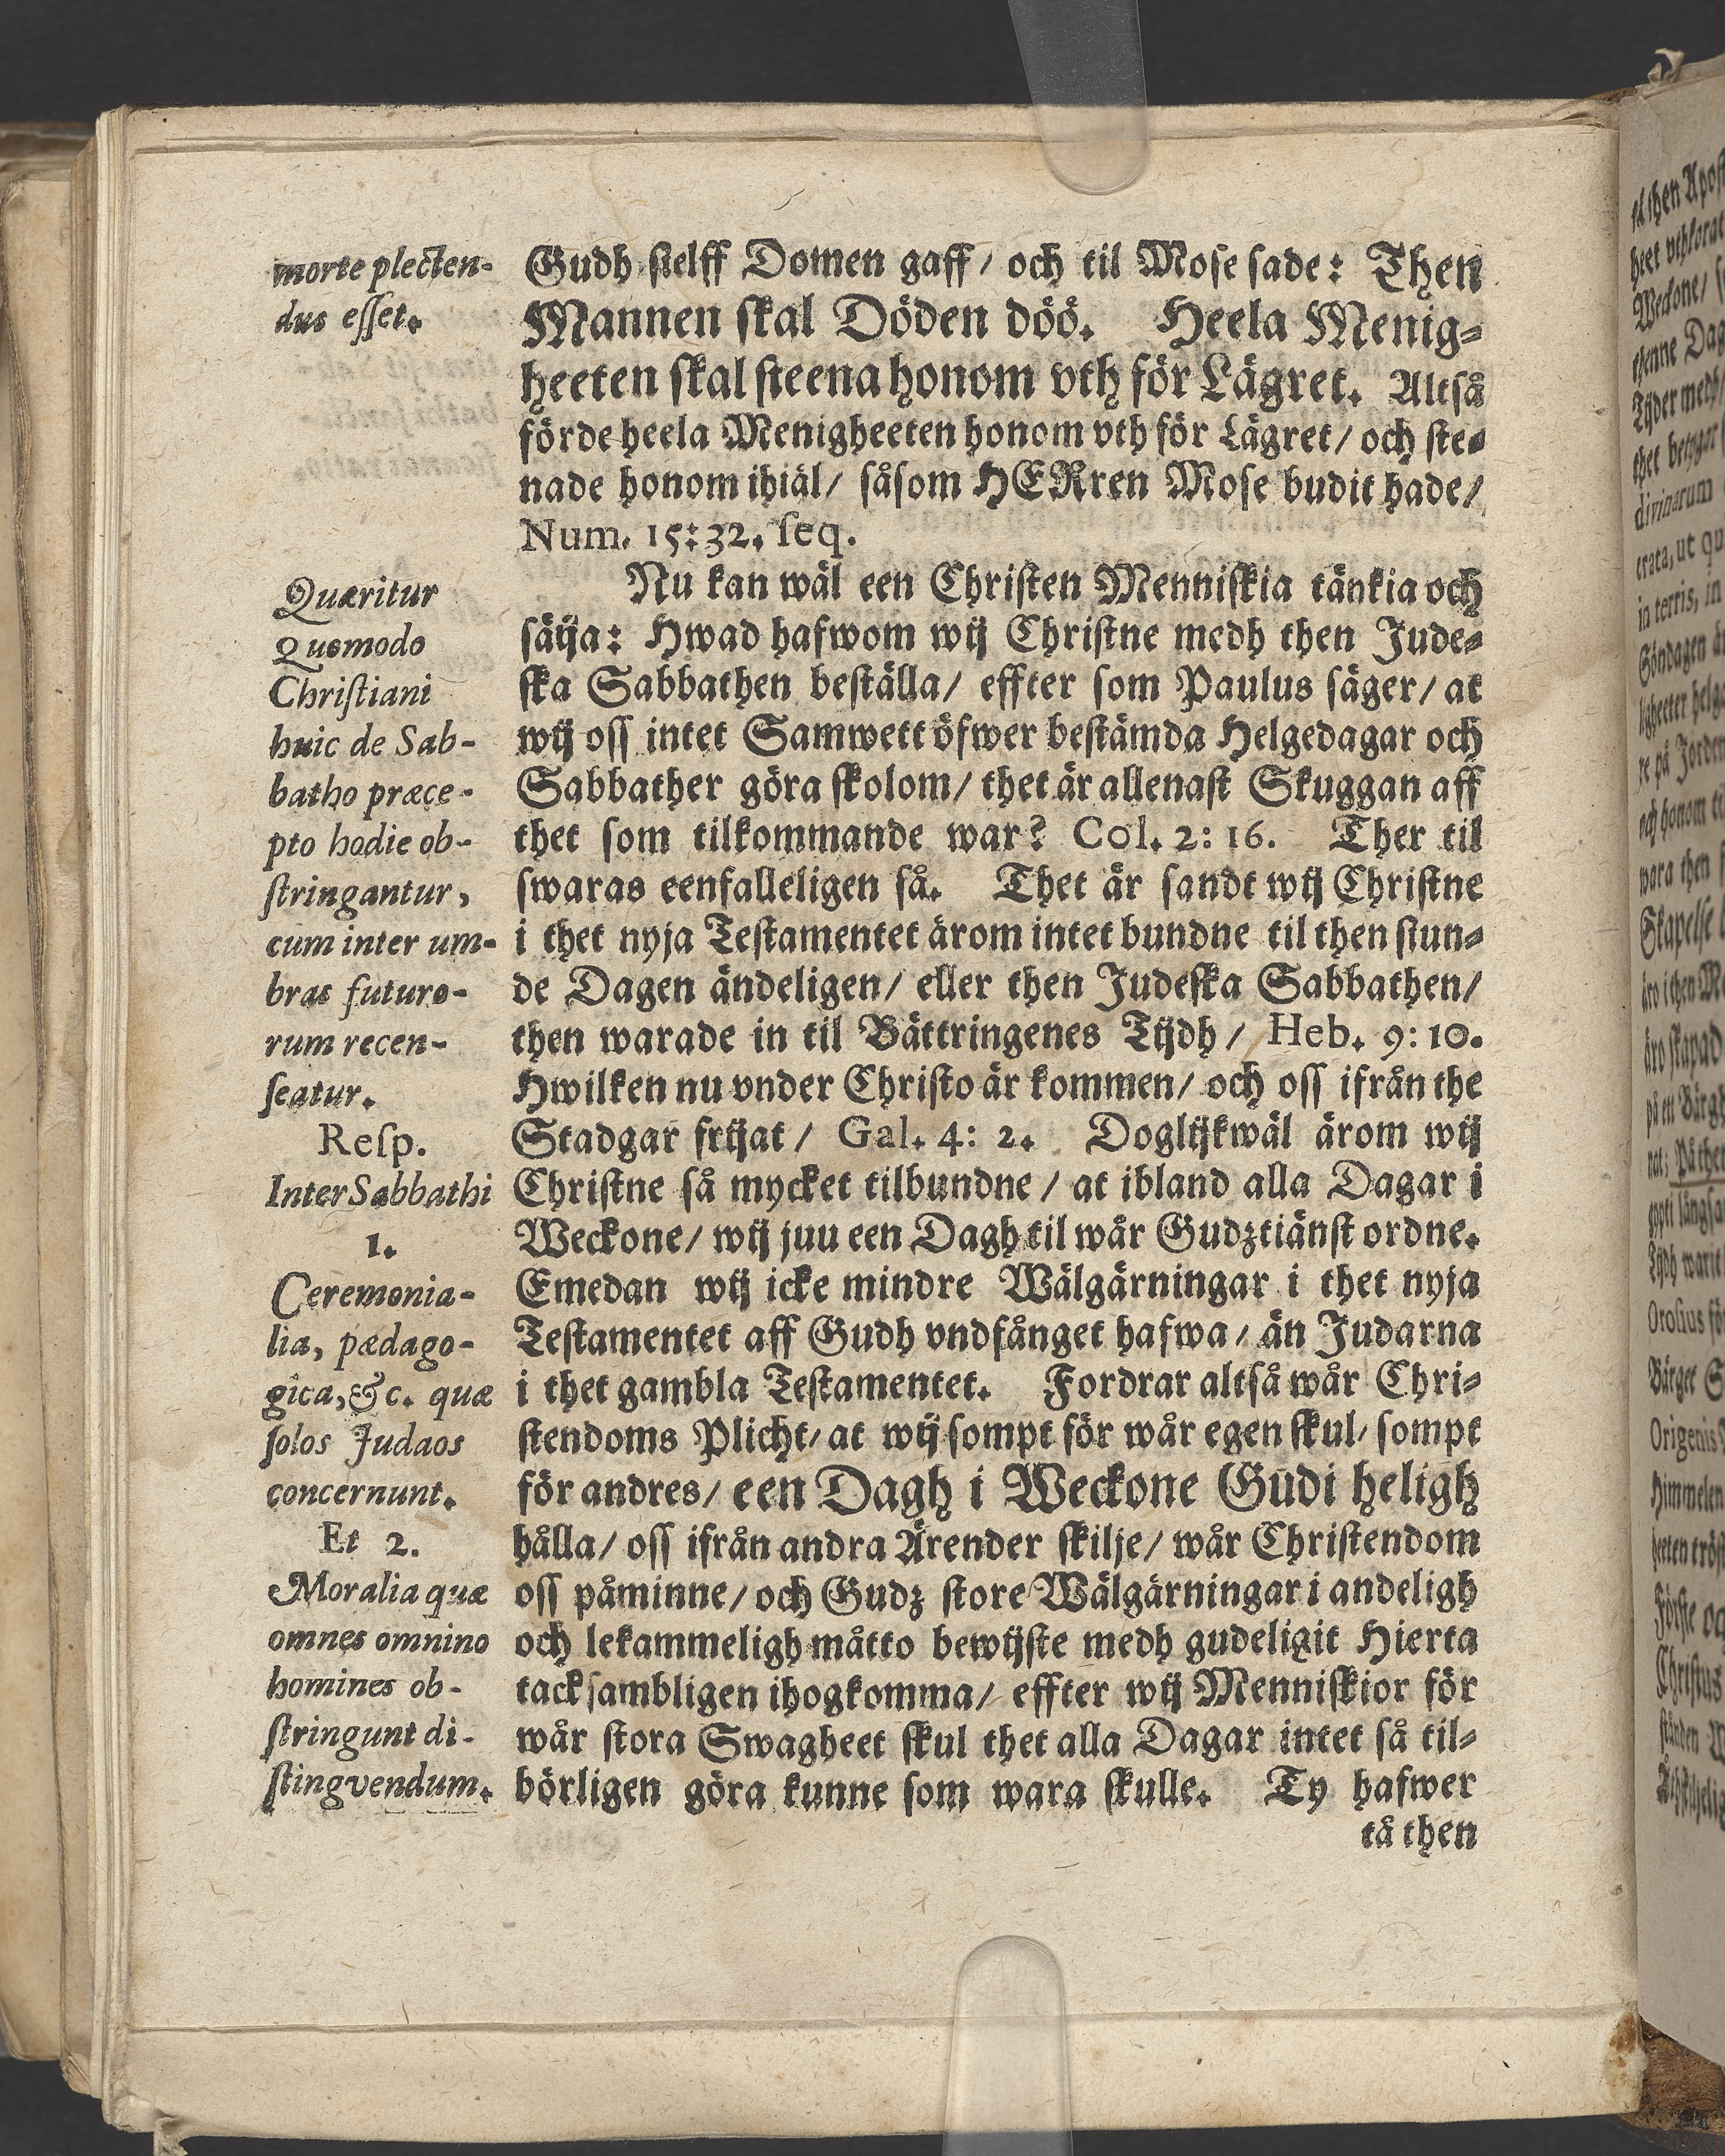 morte plecten-
dus esset.
Quæritur
Quomodo
Christiani
huic de Sab-
batho præce-
pto hodie ob-
stringantur,
cum inter um-
bras futuro-
rum recen-
seatur.
Resp.
Inter Sabbathi
1.
Ceremonia-
lia, pædago-
gica, &c. quæ
solos Judæos
concernunt.
Et 2.
Moralia quæ
omnes omnino
homines ob-
stringunt di-
stingvendum.
Gudh sielff Domen gaff / och til Mose sade: Then
Mannen skal Döden döö. Heela Menig-
heeten skal steena honom vth för Lägret. Altså
förde heela Menigheeten honom vth för Lägret / och ste-
nade honom ihiäl / såsom HERren Mose budit hade /
Num. 15:32. seq.
Nu kan wäl een Christen Menniskia tänkia och
säija: Hwad hafwom wij Christne medh then Jude-
ska Sabbathen beställa / effter som Paulus säger / at
wij oss intet Samwett öfwer bestämda Helgedagar och
Sabbather göra skolom / thet är allenast Skuggan aff
thet som tilkommande war? Col. 2: 16. Ther til
swaras eenfalleligen så. Thet är sandt wij Christne
i thet nyja Testamentet ärom intet bundne til then siun-
de Dagen ändeligen / eller then Judeska Sabbathen /
then warade in til Bättringenes Tijdh / Heb. 9: 10.
Hwilken nu vnder Christo är kommen / och oss ifrån the
Stadgar frijat / Gal. 4: 2. Doglijkwäl ärom wij
Christne så mycket tilbundne / at ibland alla Dagar i
Weckone / wij juu een Dagh til wår Gudztiänst ordne.
Emedan wij icke mindre Wälgärningar i thet nyja
Testamentet aff Gudh vndfånget hafwa / än Judarna
i thet gambla Testamentet. Fordrar altså wår Chri-
stendoms Plicht / at wij sompt för wår egen skul / sompt
för andres / een Dagh i Weckone Gudi heligh
hålla / oss ifrån andra Ärender skilje / wår Christendom
oss påminne / och Gudz store Wälgärningar i andeligh
och lekammeligh måtto bewijste medh gudeligit Hierta
tacksambligen ihogkomma / effter wij Menniskior för
wår stora Swagheet skul thet alla Dagar intet så til-
börligen göra kunne som wara skulle. Ty hafwer
tå then